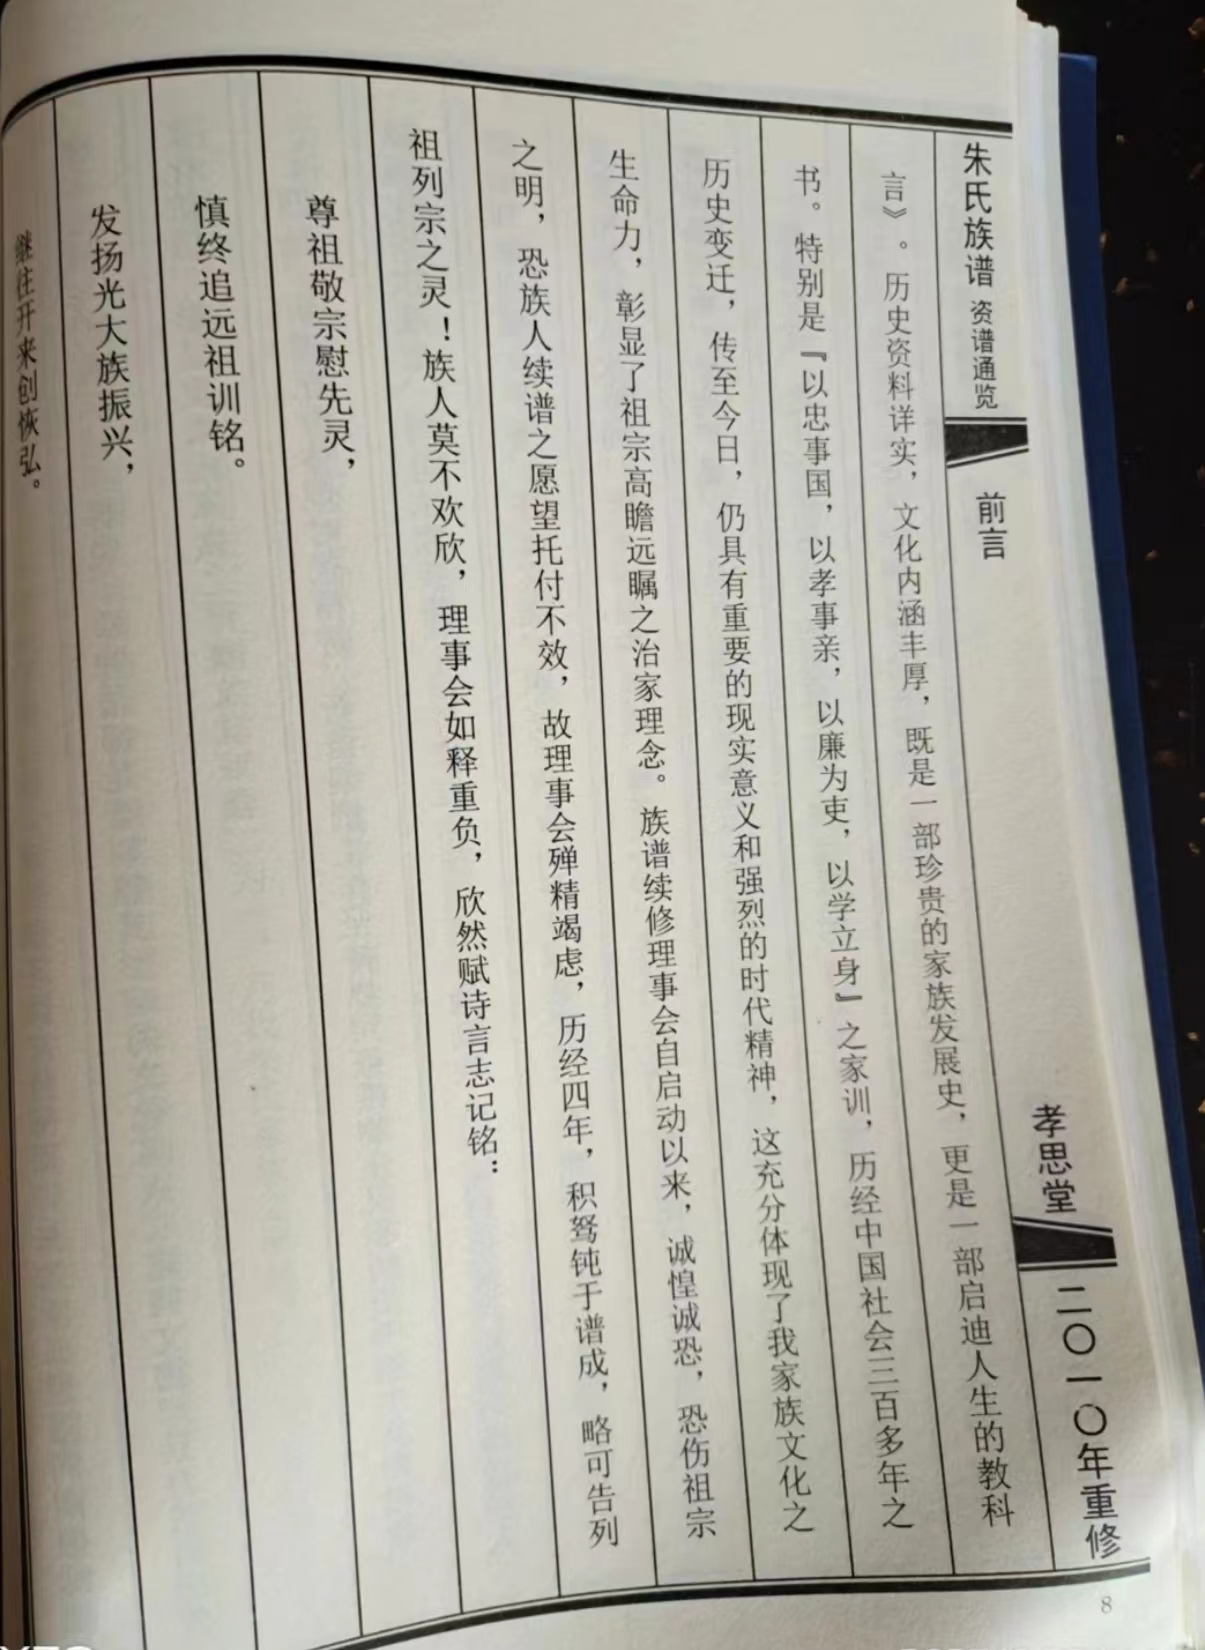 朱氏族谱 资谱通览 前言 孝思堂 二〇一〇年重修
言》。历史资料详实，文化内涵丰厚，既是一部珍贵的家族发展史，更是一部启迪人生的教科
书。特别是『以忠事国，以孝事亲，以廉为吏，以学立身』之家训，历经中国社会三百多年之
历史变迁，传至今日，仍具有重要的现实意义和强烈的时代精神，这充分体现了我家族文化之
生命力，彰显了祖宗高瞻远瞩之治家理念。族谱续修理事会自启动以来，诚惶诚恐，恐伤祖宗
之明，恐族人续谱之愿望托付不效，故理事会殚精竭虑，历经四年，积驽钝于谱成，略可告列
祖列宗之灵！族人莫不欢欣，理事会如释重负，欣然赋诗言志记铭：
尊祖敬宗慰先灵，
慎终追远祖训铭。
发扬光大族振兴，
继往开来创恢弘。
8